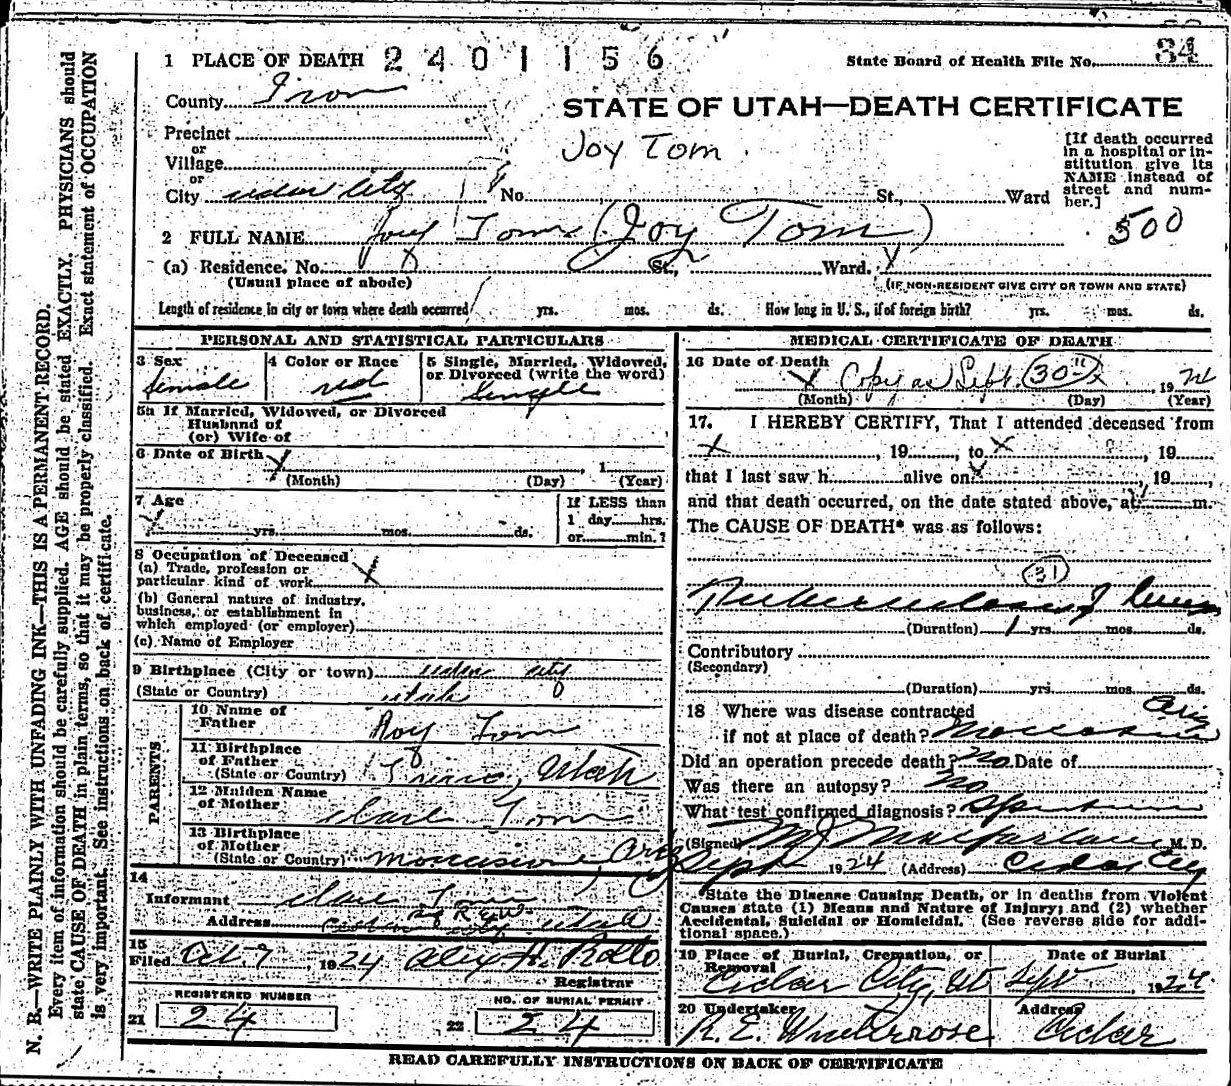 84
1 PLACE OF DEATH 2401156 State Board of Health File No.
County Iron
STATE OF UTAH—DEATH CERTIFICATE
Precinct
or
Joy Tom
[If death occurred in a hospital or institution give its NAME instead of street and number.]
Village
or
City Cedar City No. St., Ward
500
2 FULL NAME Joy Tom (Joy Tom)
(a) Residence. No. St., Ward. X
(Usual place of abode) (IF NON-RESIDENT GIVE CITY OR TOWN AND STATE)
Length of residence in city or town where death occurred yrs. mos. ds. How long in U. S., if of foreign birth? yrs. mos. ds.
PERSONAL AND STATISTICAL PARTICULARS
3 Sex female
4 Color or Race red
5 Single, Married, Widowed, or Divorced (write the word) Single
5a If Married, Widowed, or Divorced
Husband of
(or) Wife of
6 Date of Birth X , 1
(Month) (Day) (Year)
7 Age
yrs. mos. ds.
If LESS than
1 day hrs.
or min.?
8 Occupation of Deceased
(a) Trade, profession or
particular kind of work X
(b) General nature of industry,
business, or establishment in
which employed (or employer)
(c) Name of Employer
9 Birthplace (City or town) Cedar City
(State or Country) Utah
PARENTS
10 Name of Father Roy Tom
11 Birthplace of Father (State or Country) Utah
12 Maiden Name of Mother Tom
13 Birthplace of Mother (State or Country) Ariz
14
Informant Tom
Address Utah
15
Filed Oct. 7 1924 Alex H. Rollo
Registrar
REGISTERED NUMBER
21 24
NO. OF BURIAL PERMIT
22 24
MEDICAL CERTIFICATE OF DEATH
16 Date of Death
X Copy as Sept. 30 1924
(Month) (Day) (Year)
17. I HEREBY CERTIFY, That I attended deceased from
X , 19 , to X , 19
that I last saw h alive on X , 19 ,
and that death occurred, on the date stated above, at m.
The CAUSE OF DEATH* was as follows:
31
Tuberculosis of lungs
(Duration) 1 yrs. mos. ds.
Contributory
(Secondary)
(Duration) yrs. mos. ds.
18 Where was disease contracted Ariz
if not at place of death? Moccasin
Did an operation precede death? No. Date of
Was there an autopsy? No
What test confirmed diagnosis? Sputum
(Signed) M J Macfarlane M. D.
Sept 1924 (Address) Cedar City
State the Disease Causing Death, or in deaths from Violent
Causes state (1) Means and Nature of Injury; and (2) whether
Accidental, Suicidal or Homicidal. (See reverse side for addi-
tional space.)
19 Place of Burial, Cremation, or Removal Date of Burial
Cedar City, Ut Sept , 1924
20 Undertaker Address
R. E. Cedar
READ CAREFULLY INSTRUCTIONS ON BACK OF CERTIFICATE
N. B.—WRITE PLAINLY WITH UNFADING INK—THIS IS A PERMANENT RECORD.
Every item of information should be carefully supplied. AGE should be stated EXACTLY. PHYSICIANS should
state CAUSE OF DEATH in plain terms, so that it may be properly classified. Exact statement of OCCUPATION
is very important. See instructions on back of certificate.